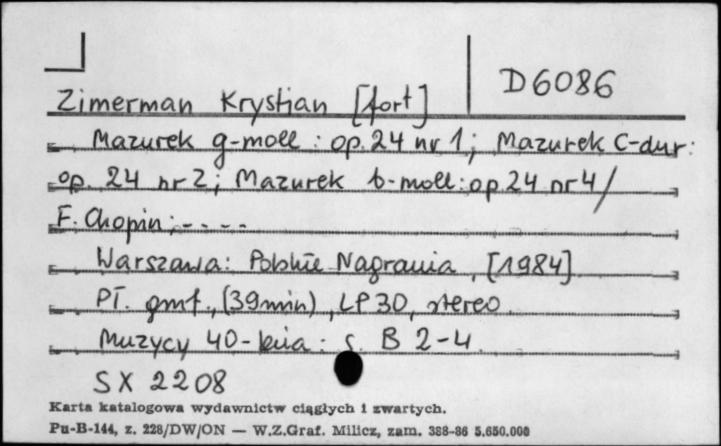 D 6086
Zimerman Krystian [fort]
Mazurek g-moll : op. 24 nr 1 ; Mazurek C-dur :
op. 24 nr 2 ; Mazurek b-moll : op 24 nr 4 /
F. Chopin ; - - - -
Warszawa : Polskie Nagrania , [1984]
Pł. gmf., (39 min) , LP 30 , stereo
Muzycy 40-lecia : s. B 2-4.
SX 2208
Karta katalogowa wydawnictw ciągłych i zwartych.
Pu-B-144, z. 228/DW/ON — W.Z.Graf. Milicz, zam. 388-86 5.650.000